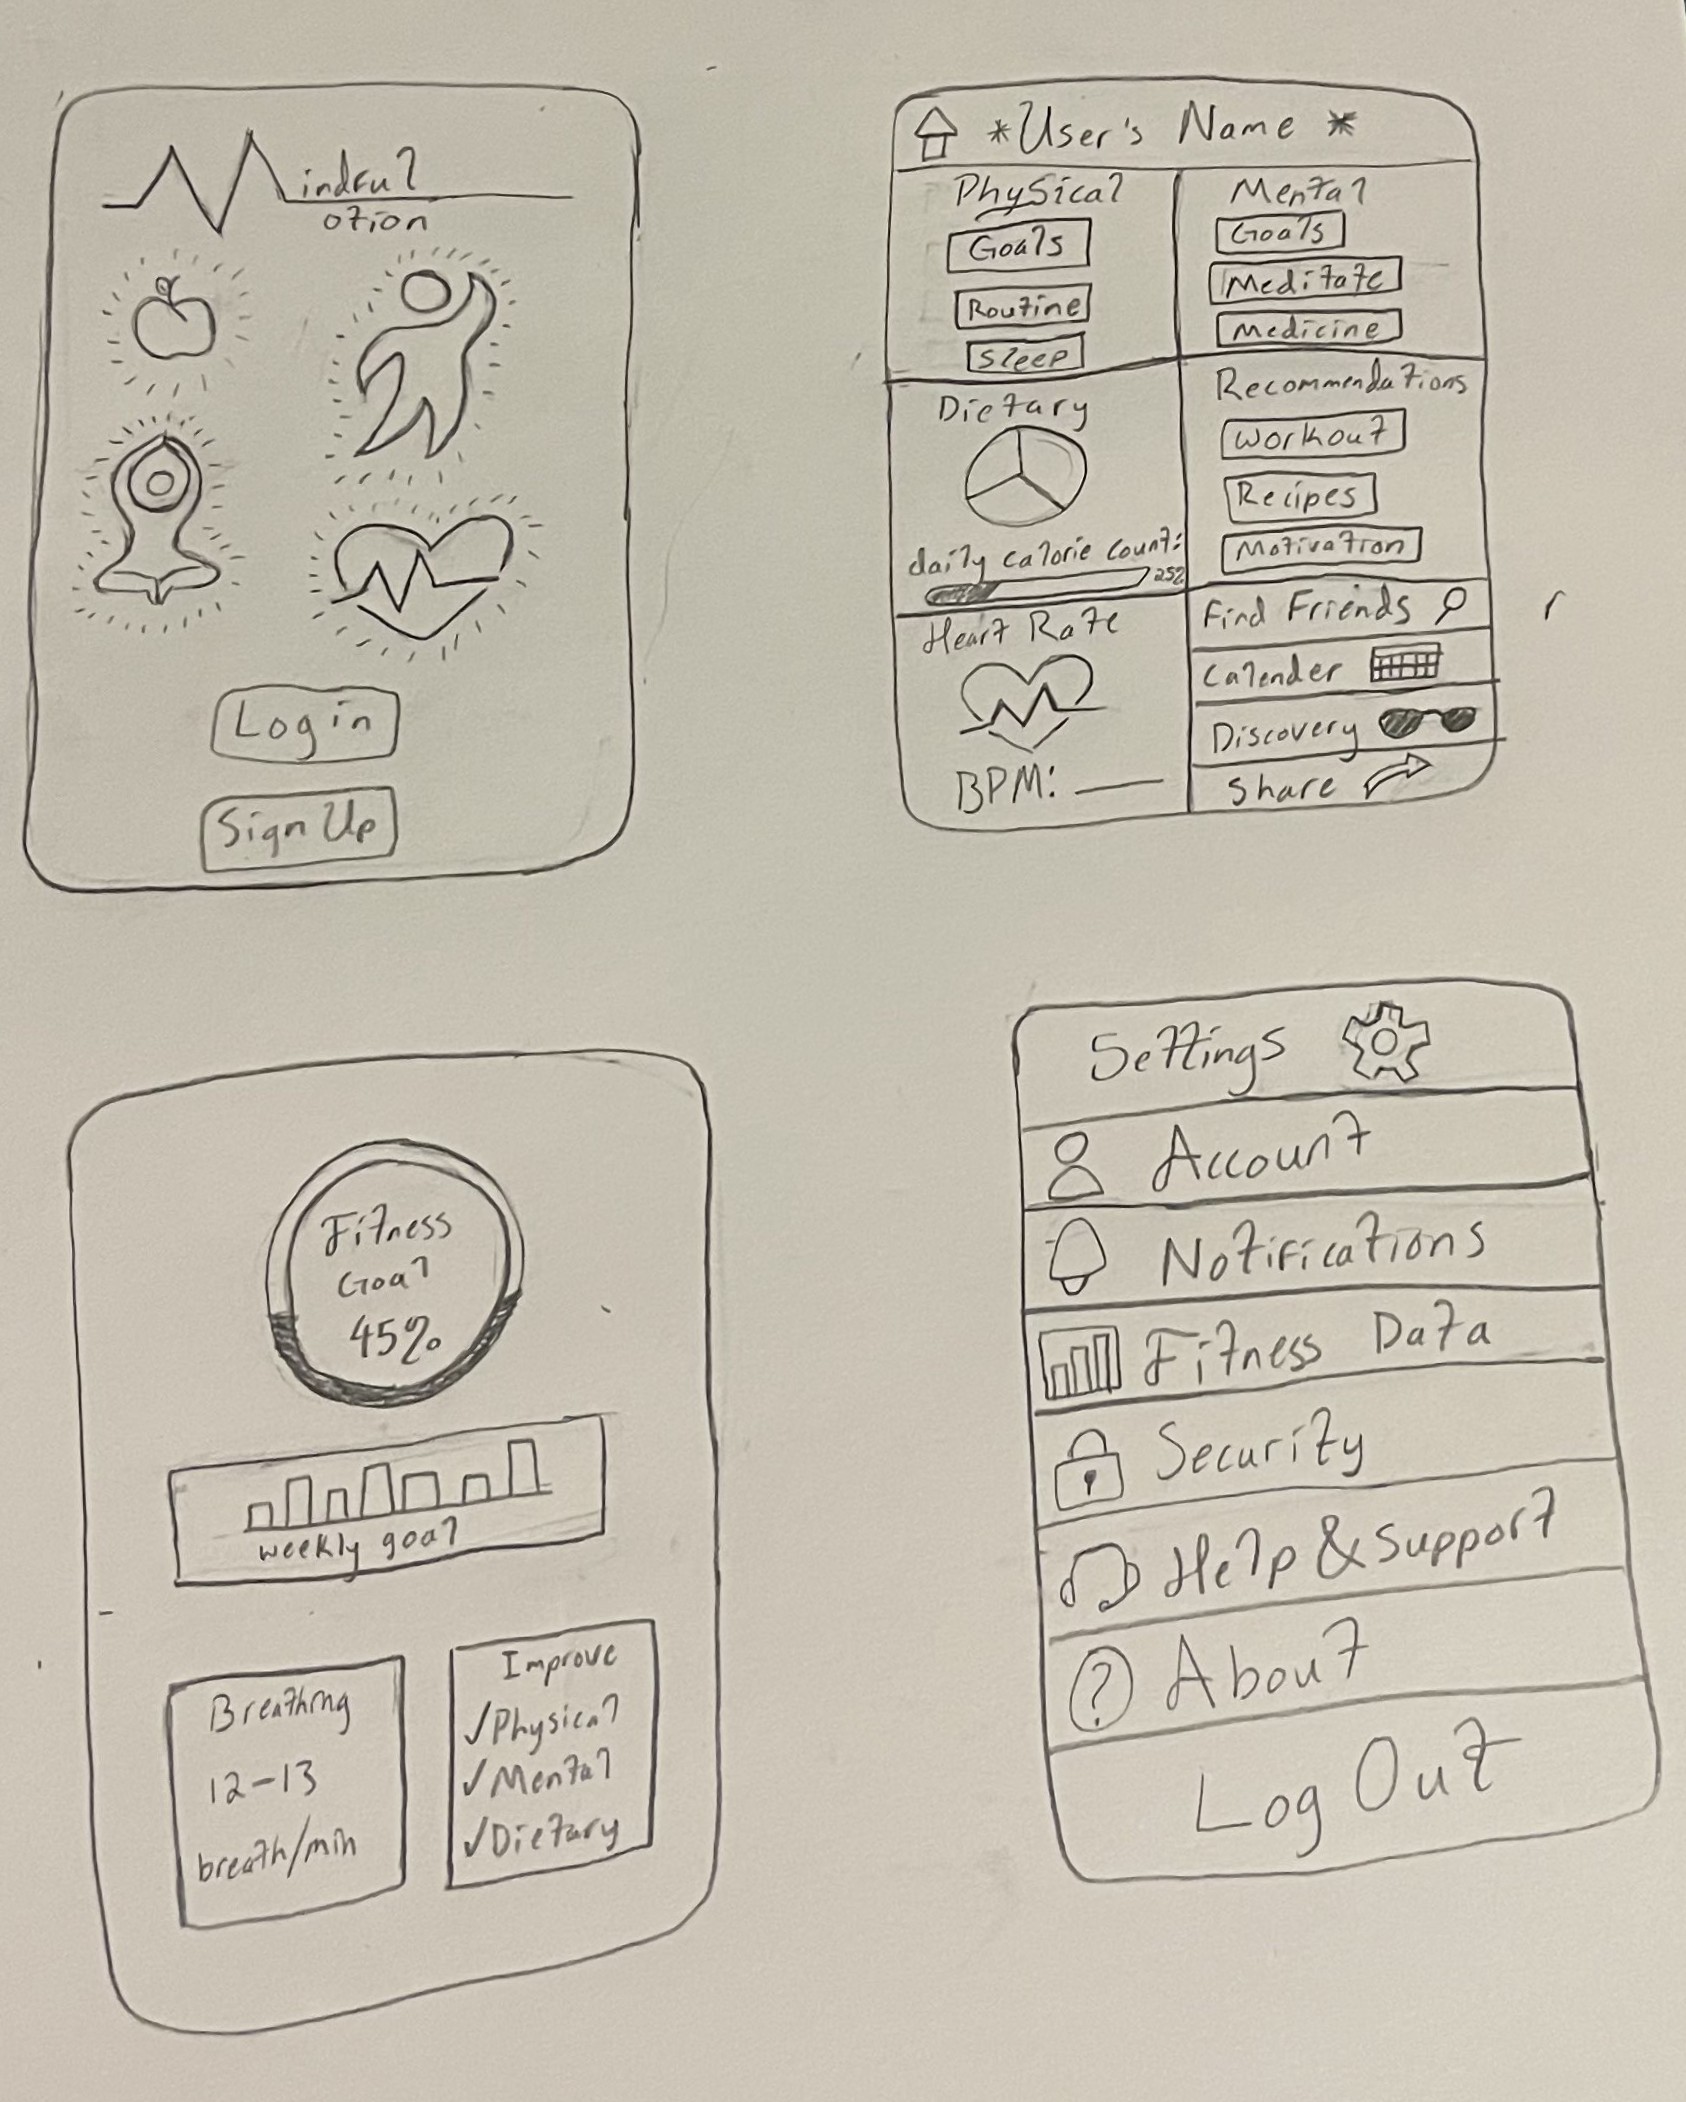 indful
otion
Log in
Sign Up
*User's Name *
Physical
Goals
Routine
Sleep
Mental
Goals
Meditate
Medicine
Dietary
daily calorie count:
25%
Recommendations
Workout
Recipes
Motivation
Heart Rate
BPM: ___
Find Friends
Calender
Discovery
Share
Fitness
Goal
45%
weekly goal
Breathing
12-13
breath/min
Improve
✓Physical
✓Mental
✓Dietary
Settings
Account
Notifications
Fitness Data
Security
Help & Support
? About
Log Out